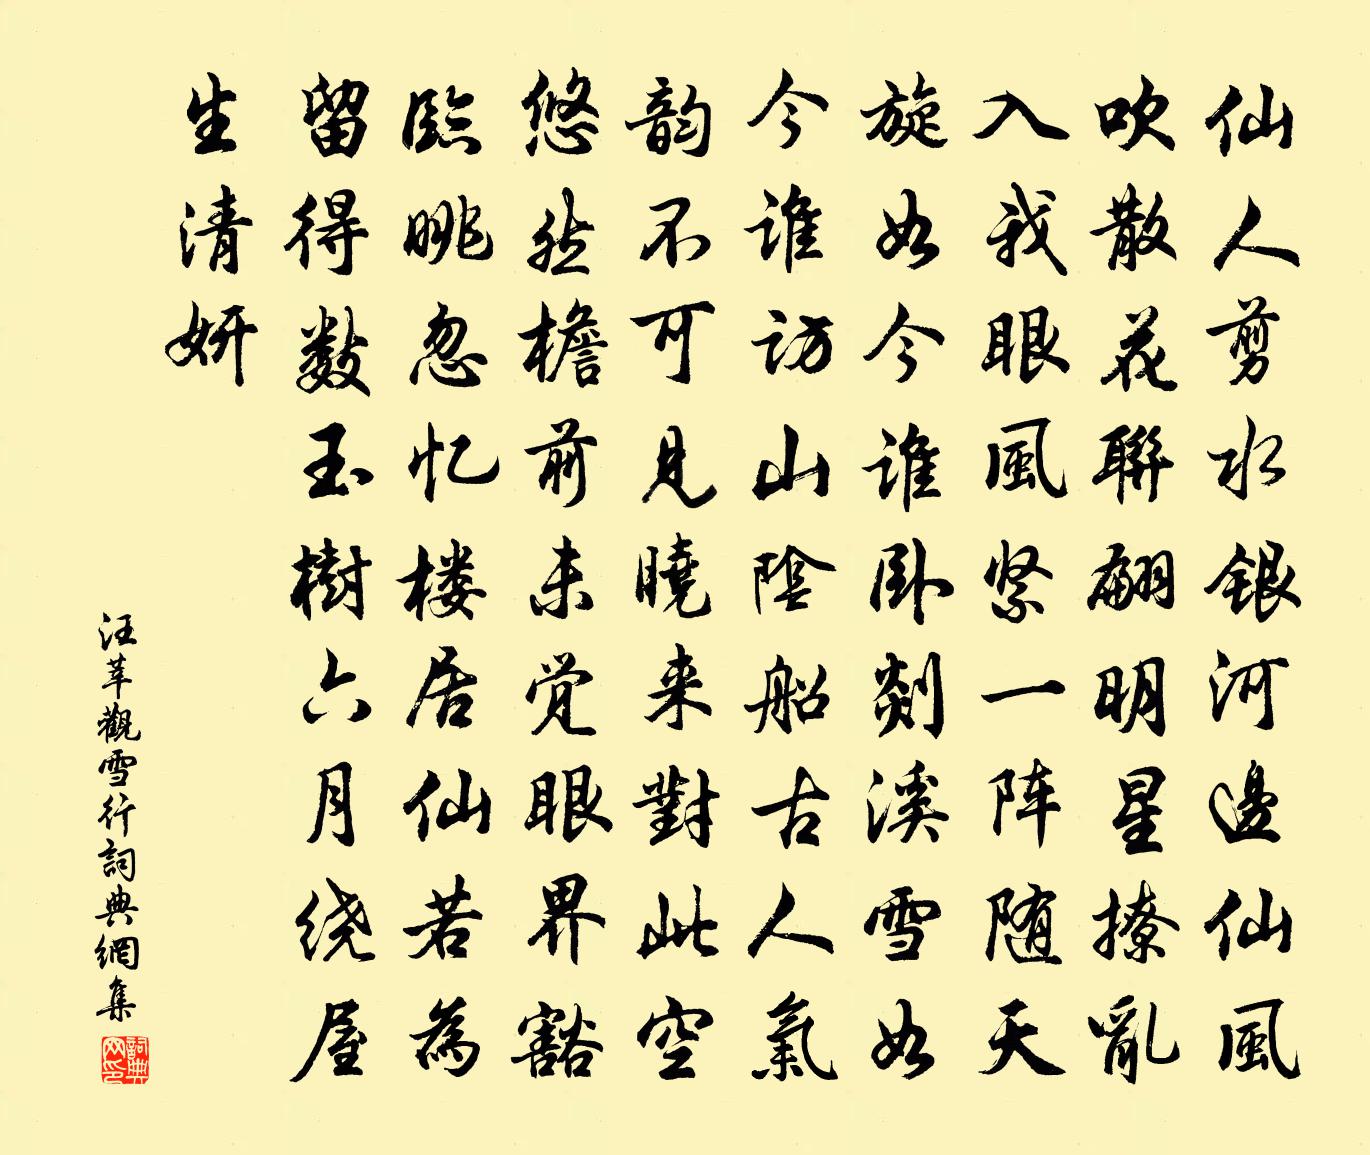 仙人剪水銀河邊仙風
吹散花聯翩明星撩亂
入我眼風緊一阵随天
旋如今谁卧剡溪雪如
今谁訪山陰船古人氣
韵不可見曉来對此空
悠然檐前未觉眼界豁
臨眺忽忆楼居仙若為
留得数玉樹六月绕屋
生清妍
汪莘觀雪行詞典網集
詞典网印